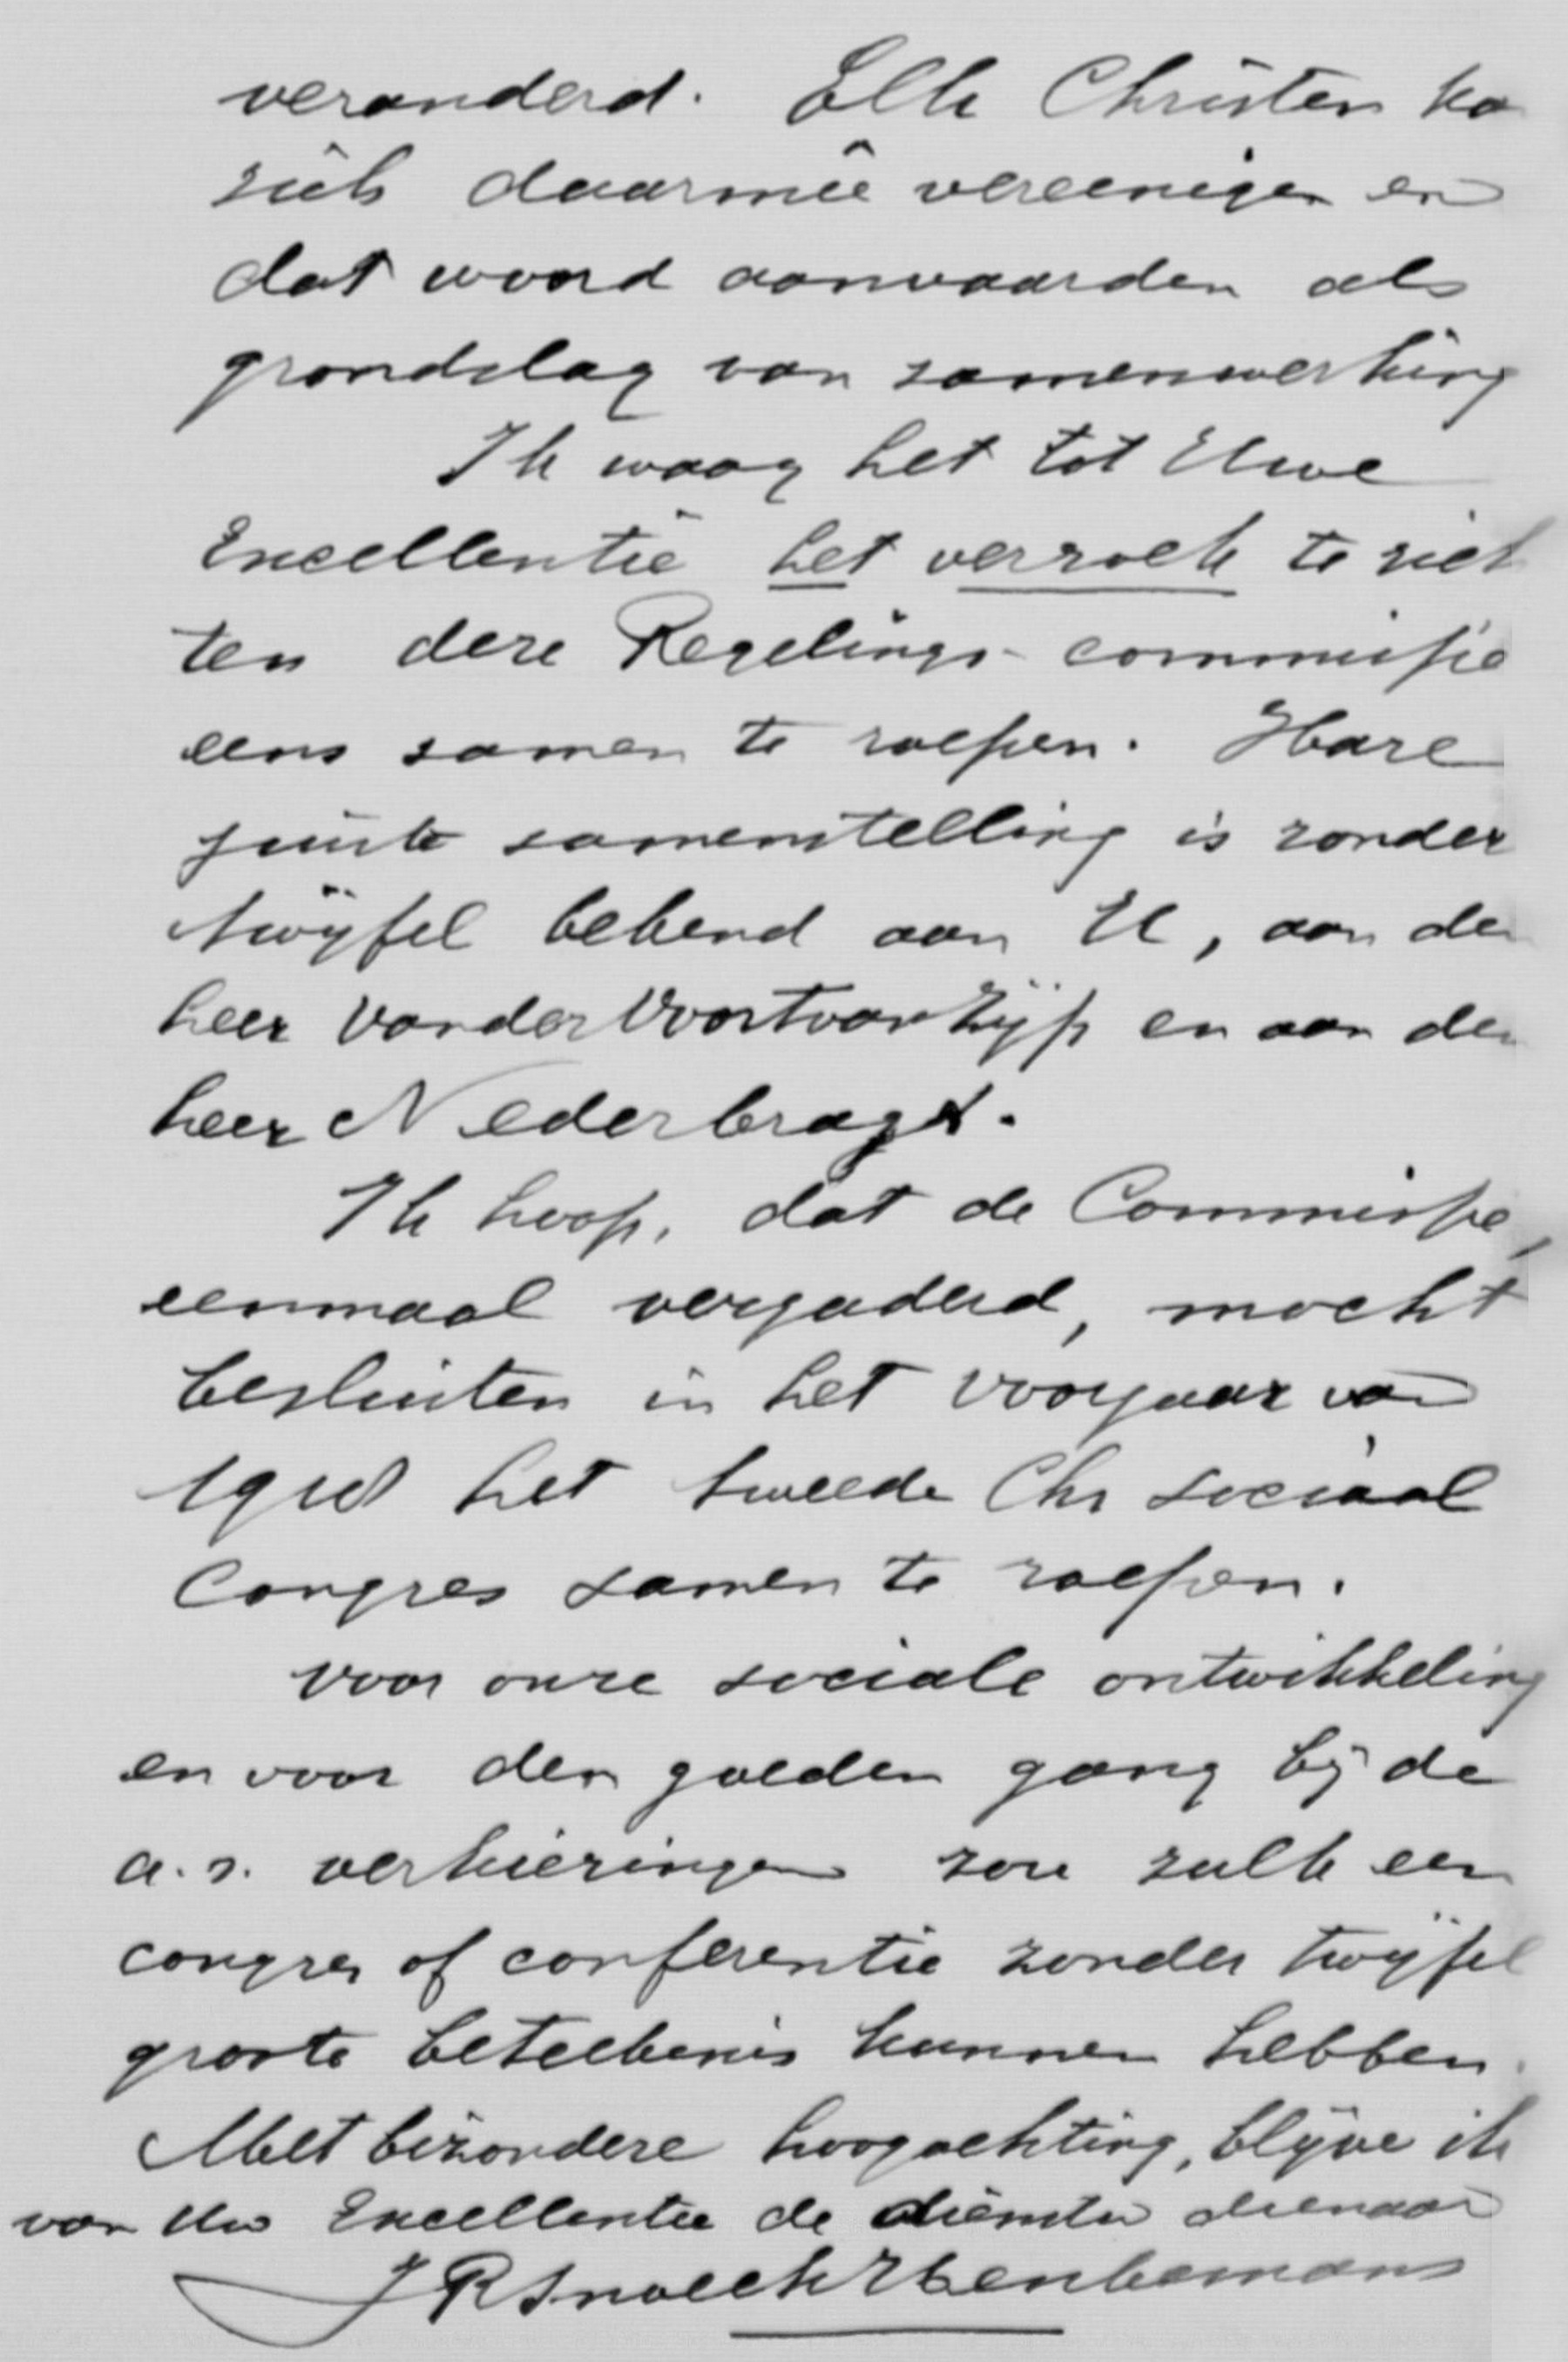 veranderd. Elk Christen ka
zich daarmêe vereenigen en
dat woord aanvaarden als
grondslag van samenwerking
Ik waag het tot Uwe
Excellentie het verzoek te rich
ten deze Regelings-commissie
eens samen te roepen. Hare
juiste samenstelling is zonder
twijfel bekend aan U, aan den
heer van der Voort van Zijp en aan den
heer Nederbragt.
Ik hoop, dat de Commissie,
eenmaal vergaderd, mocht
besluiten in het voorjaar van
het tweede Chr sociaal
Congres samen te roepen.
Voor onze sociale ontwikkeling
en voor den goeden gang bij de
a.s. verkiezingen zou zulk een
congres of conferentie zonder twijfel
groote beteekenis kunnen hebben.
Met bizondere hoogachting, blijve ik
van Uw Excellentie de dienstw dienaar
J R Snoeck Henkemans